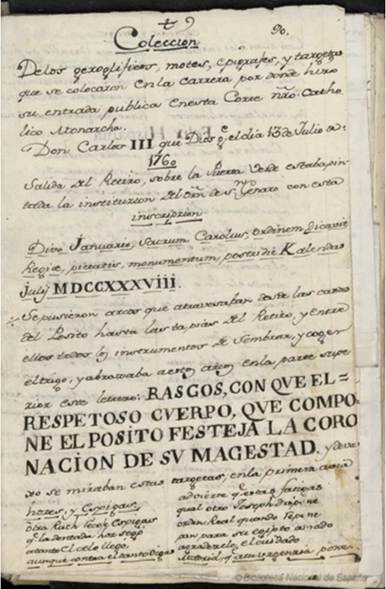 90.
Coleccion
De los geroglificos, motes, epigrafes, y targetas
que se colocaron en la Carrera por donde hizo
su entrada publica en esta Corte nro. Catho
lico Monarcha.
Don Carlos III que Dios gue. el dia 13 de Julio de
1760
Salida del Retiro, sobre la Puerta Verde estaba pin-
tada la institucion del Orn. de Sn. Genaro con esta
inscripcion
Divo Januario, Sacrum Carolus, Ordinem dicavit
Regiae, pietatis, monumentum, postridie Kalendas
Julij MDCCXXXVIII.
Se pusieron arcos que atravesaban desde las casas
del Posito hasta las tapias del Retiro, y entre
ellos todos los instrumentos de Sembrar, y coger
el trigo, y abrazaba en la parte supe
rior este letrero: RASGOS, CON QVE EL=
RESPETOSO CVERPO, QVE COMPO
NE EL POSITO FESTEJA LA CORO
NACION DE SV MAGESTAD. y deba
xo se miraban estas targetas, en la primera havia
hozes, y Espigas
Otra Ruth cogio Espigas
atento el celo llego,
advierte q.
qual otro Joseph
orden Real quando
pan para su egipto amado
el cuidado
Madrid,
© Biblioteca Nacional de España